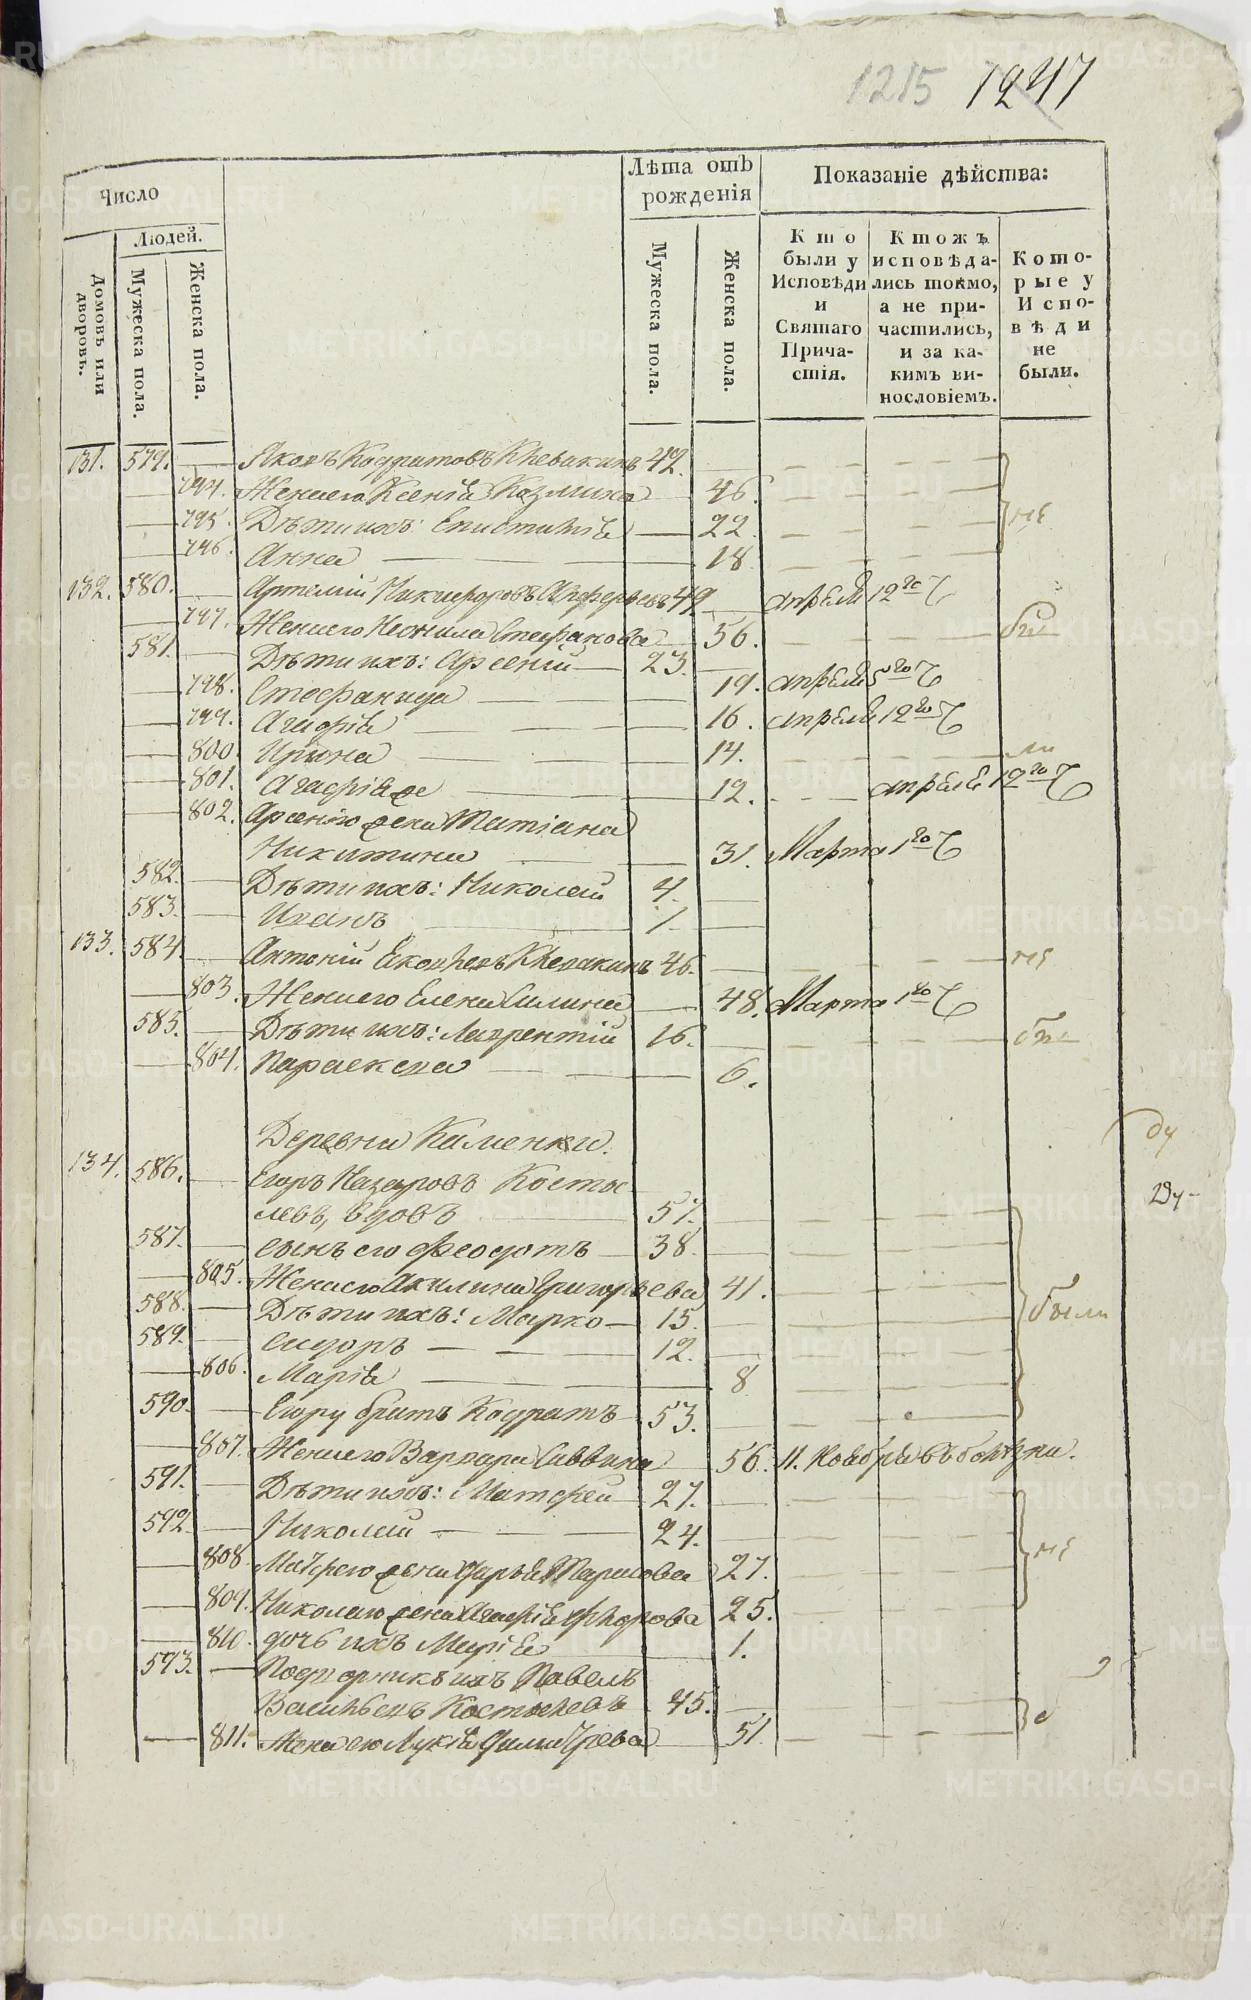 1215 1247
Число
Людей.
Домовъ или дворовъ.
Мужеска пола.
Женска пола.
Лѣта отъ рожденія
Мужеска пола.
Женска пола.
Показаніе дѣйства:
Кто были у Исповѣди и Святаго Причастія.
Ктожъ исповѣдались токмо, а не причастились, и за какимъ винословіемъ.
Которые у Исповѣди не были.
131. 579. Яковъ Кодратовъ Клевакинъ 42.
794. Жена его Ксенія Козмина 46.
795. Дѣти ихъ: Епистимія 22
796. Анна 18
132. 580. Артемій Никифоровъ 49 апрѣля 12го
797. Жена его Неонила Стефанова 56.
581. Дѣти ихъ: Арсеній 23.
798. Стефанида 19. апрѣля 5го
799. Агафія 16. апрѣля 12го
800. Ирина 14.
801. Агафія же 12. апрѣля 12го
802. Арсенію жена Татіана
Никитина 31. Марта 1го
582. Дѣти ихъ: Николай 4.
583. Иванъ 1.
133. 584. Антоній Яковлевъ Клевакинъ 46.
803. Жена его Елена Силина 48. Марта 1го
585. Дѣти ихъ: Лаврентій 16.
804. Параскева 6.
Деревни Каменки.
134. 586. Егоръ Назаровъ Косты
левъ, вдовъ 57.
587. сынъ его Феодотъ 38.
805. Жена его Акилина Григорьева 41.
588. Дѣти ихъ: Марко 15.
589. Сидоръ 12.
806. Марія 8
были
590. Егору братъ Кодратъ 53.
807. Жена его Варвара Саввина 56. 11. Ноября въ болѣзни.
591. Дѣти ихъ: Матфей 27.
592. Николай 24.
808. Матфею жена Дарья Тарасова 27.
809. Николаю жена Агафія 25.
810. дочь ихъ Марія 1.
593. Подворникъ ихъ Павелъ
Васильевъ Костылевъ 45.
811. Жена его Лукія Димитрева 51.
METRIKI.GASO-URAL.RU